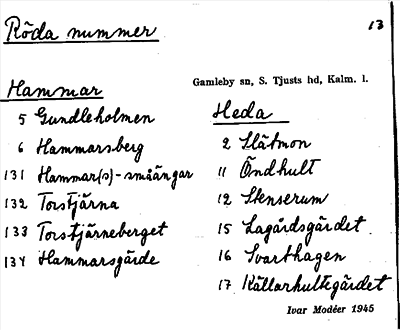 Röda nummer
13
Gamleby sn, S. Tjusts hd, Kalm. l.
Hammar
5 Gundleholmen
6 Hammarsberg
131 Hammar(s)-småängar
132 Torstjärna
133 Torstjärneberget
134 Hammarsgärde
Heda
2 Slätmon
11 Öndhult
12 Stenserum
15 Lagårdsgärdet
16 Svarthagen
17 Källarhultegärdet
Ivar Modéer 1945